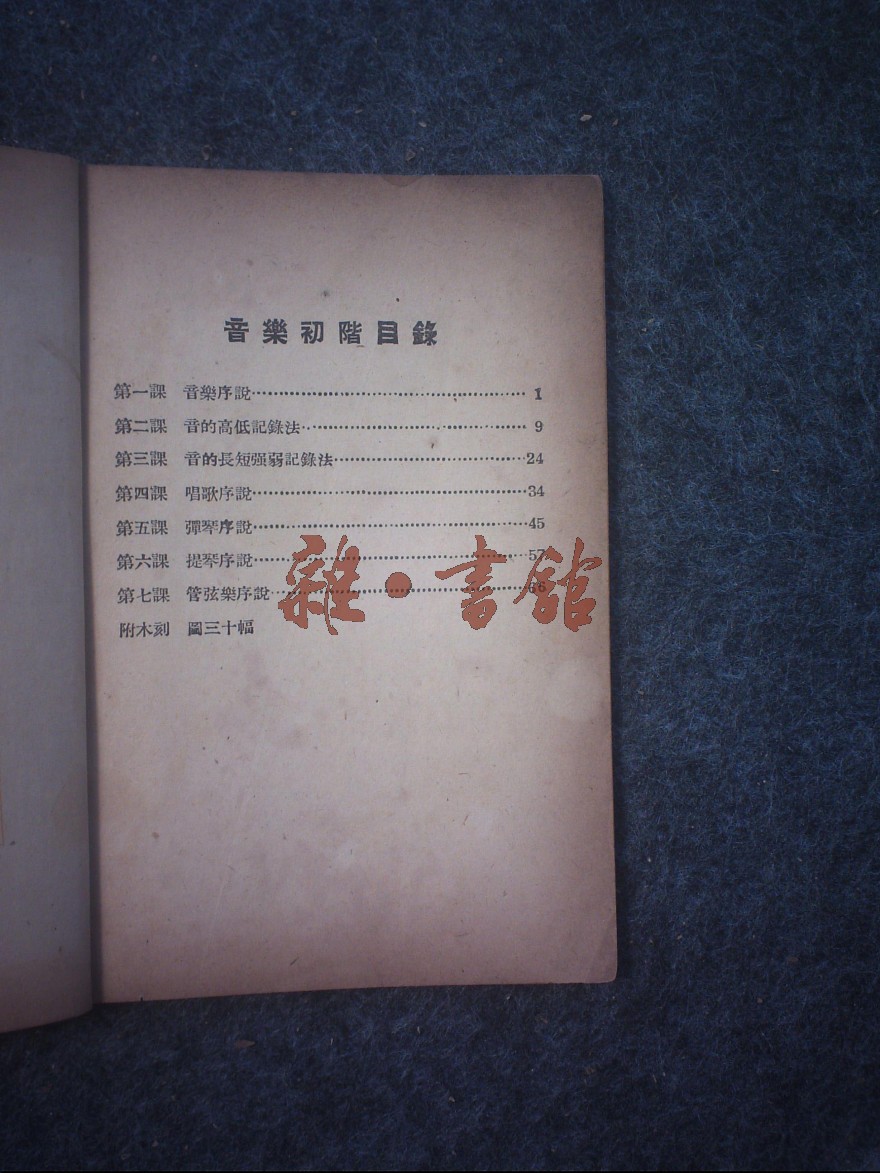 音樂初階目錄
第一課 音樂序說 1
第二課 音的高低記錄法 9
第三課 音的長短强弱記錄法 24
第四課 唱歌序說 34
第五課 彈琴序說 45
第六課 提琴序說 57
第七課 管弦樂序說 66
附木刻 圖三十幅
雜·書舘